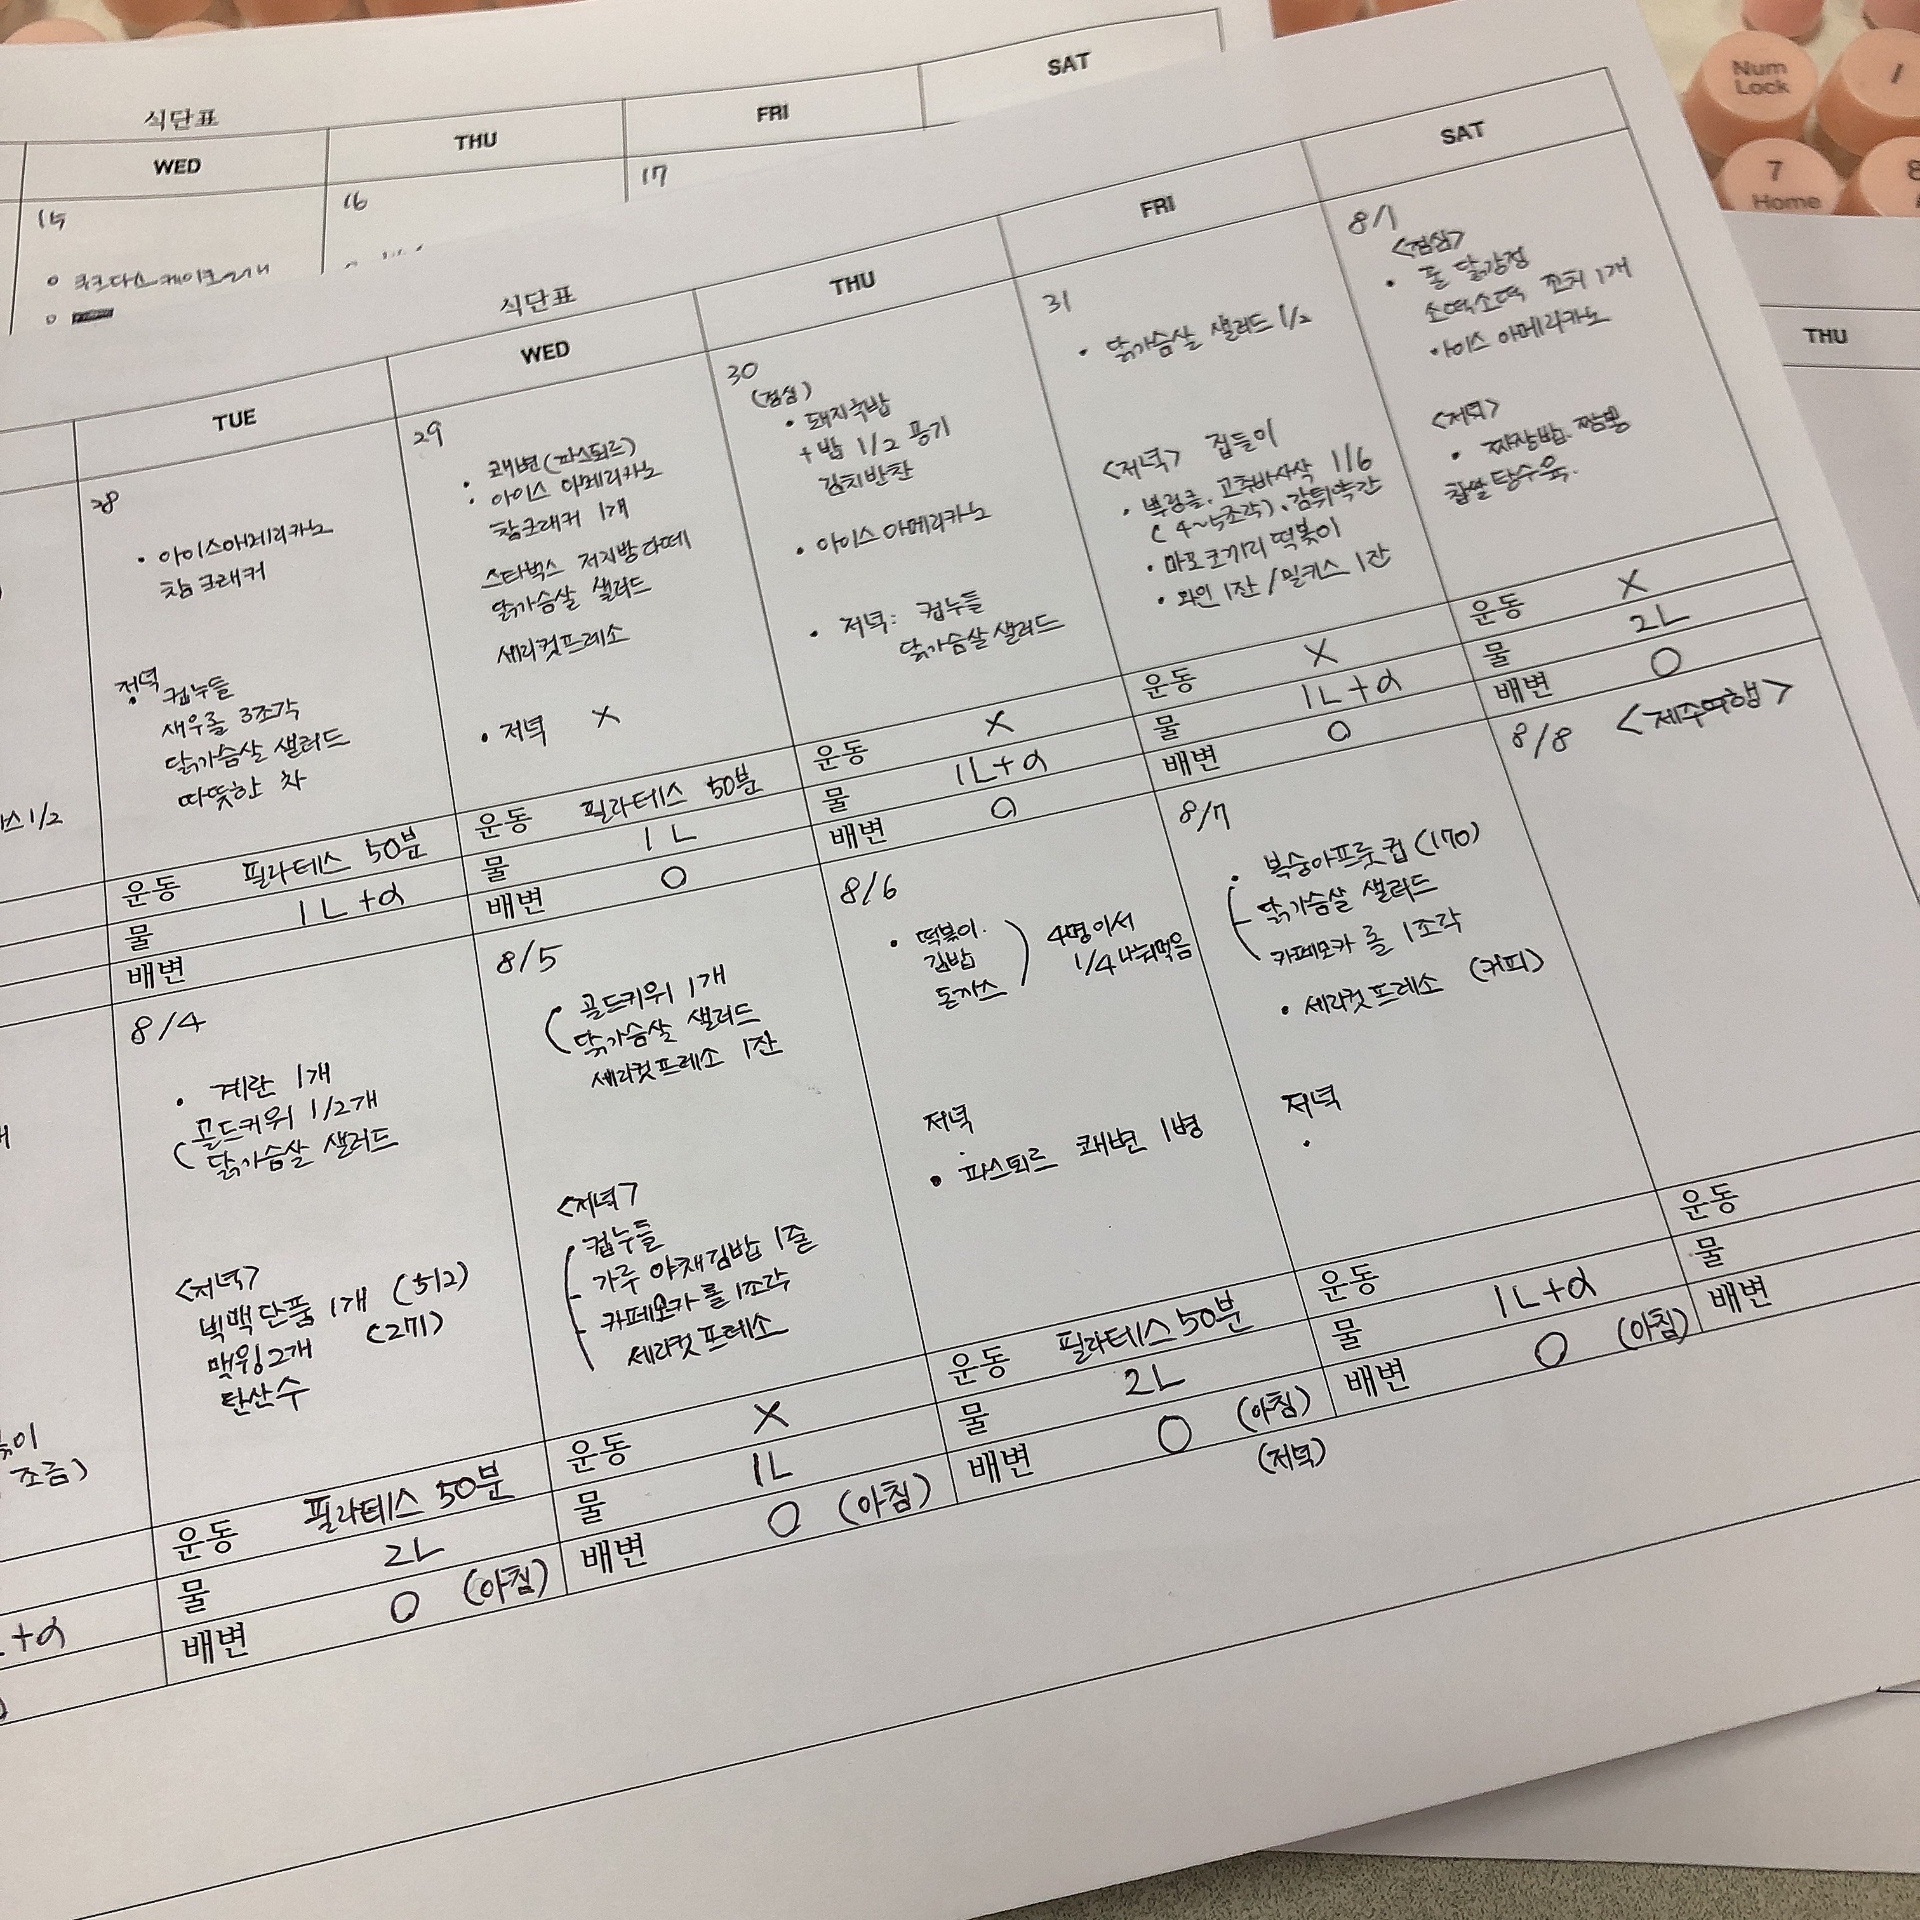 식단표
WED
THU
FRI
SAT
15
16
17
Num
Lock
/
7
Home
8
THU
식단표
TUE
WED
THU
FRI
SAT
28
• 아이스아메리카노
참크래커
저녁 컵누들
새우롤 3조각
닭가슴살 샐러드
따뜻한 차
운동 필라테스 50분
물 1L+α
배변
29
• 쾌변(파스퇴르)
• 아이스 아메리카노
참크래커 1개
스타벅스 저지방라떼
닭가슴살 샐러드
세리컷프레소
• 저녁 X
운동 필라테스 50분
물 1L
배변 O
30
(점심)
• 돼지국밥
+ 밥 1/2 공기
김치반찬
• 아이스 아메리카노
• 저녁: 컵누들
닭가슴살샐러드
운동 X
물 1L+α
배변 O
31
• 닭가슴살 샐러드 1/2
<저녁> 집들이
• 뿌링클, 고추바사삭 1/6
(4~5조각), 감튀약간
• 마포코끼리 떡볶이
• 와인 1잔 / 밀키스 1잔
운동 X
물 1L+α
배변 O
8/1
<점심>
• 폴 닭강정
소떡소떡 꼬치 1개
• 아이스 아메리카노
<저녁>
• 짜장밥. 짬뽕
찹쌀탕수육.
운동 X
물 2L
배변 O
스1/2
8/4
• 계란 1개
골드키위 1/2개
닭가슴살 샐러드
<저녁>
빅맥단품 1개 (512)
맥윙2개 (271)
탄산수
운동 필라테스 50분
물 2L
배변 O (아침)
8/5
골드키위 1개
닭가슴살 샐러드
세리컷프레소 1잔
<저녁>
컵누들
가루 야채김밥 1줄
카페모카롤 1조각
세리컷프레소
운동 X
물 1L
배변 O (아침)
8/6
• 떡볶이.
김밥
돈까스
4명이서
1/4 나눠먹음
저녁
• 파스퇴르 쾌변 1병
운동 필라테스 50분
물 2L
배변 O (아침)
(저녁)
8/7
• 복숭아프룻컵 (170)
닭가슴살 샐러드
카페모카 롤 1조각
• 세리컷프레소 (커피)
저녁
•
운동
물 1L+α
배변 O (아침)
8/8 <제주여행>
운동
물
배변
조금)
+α